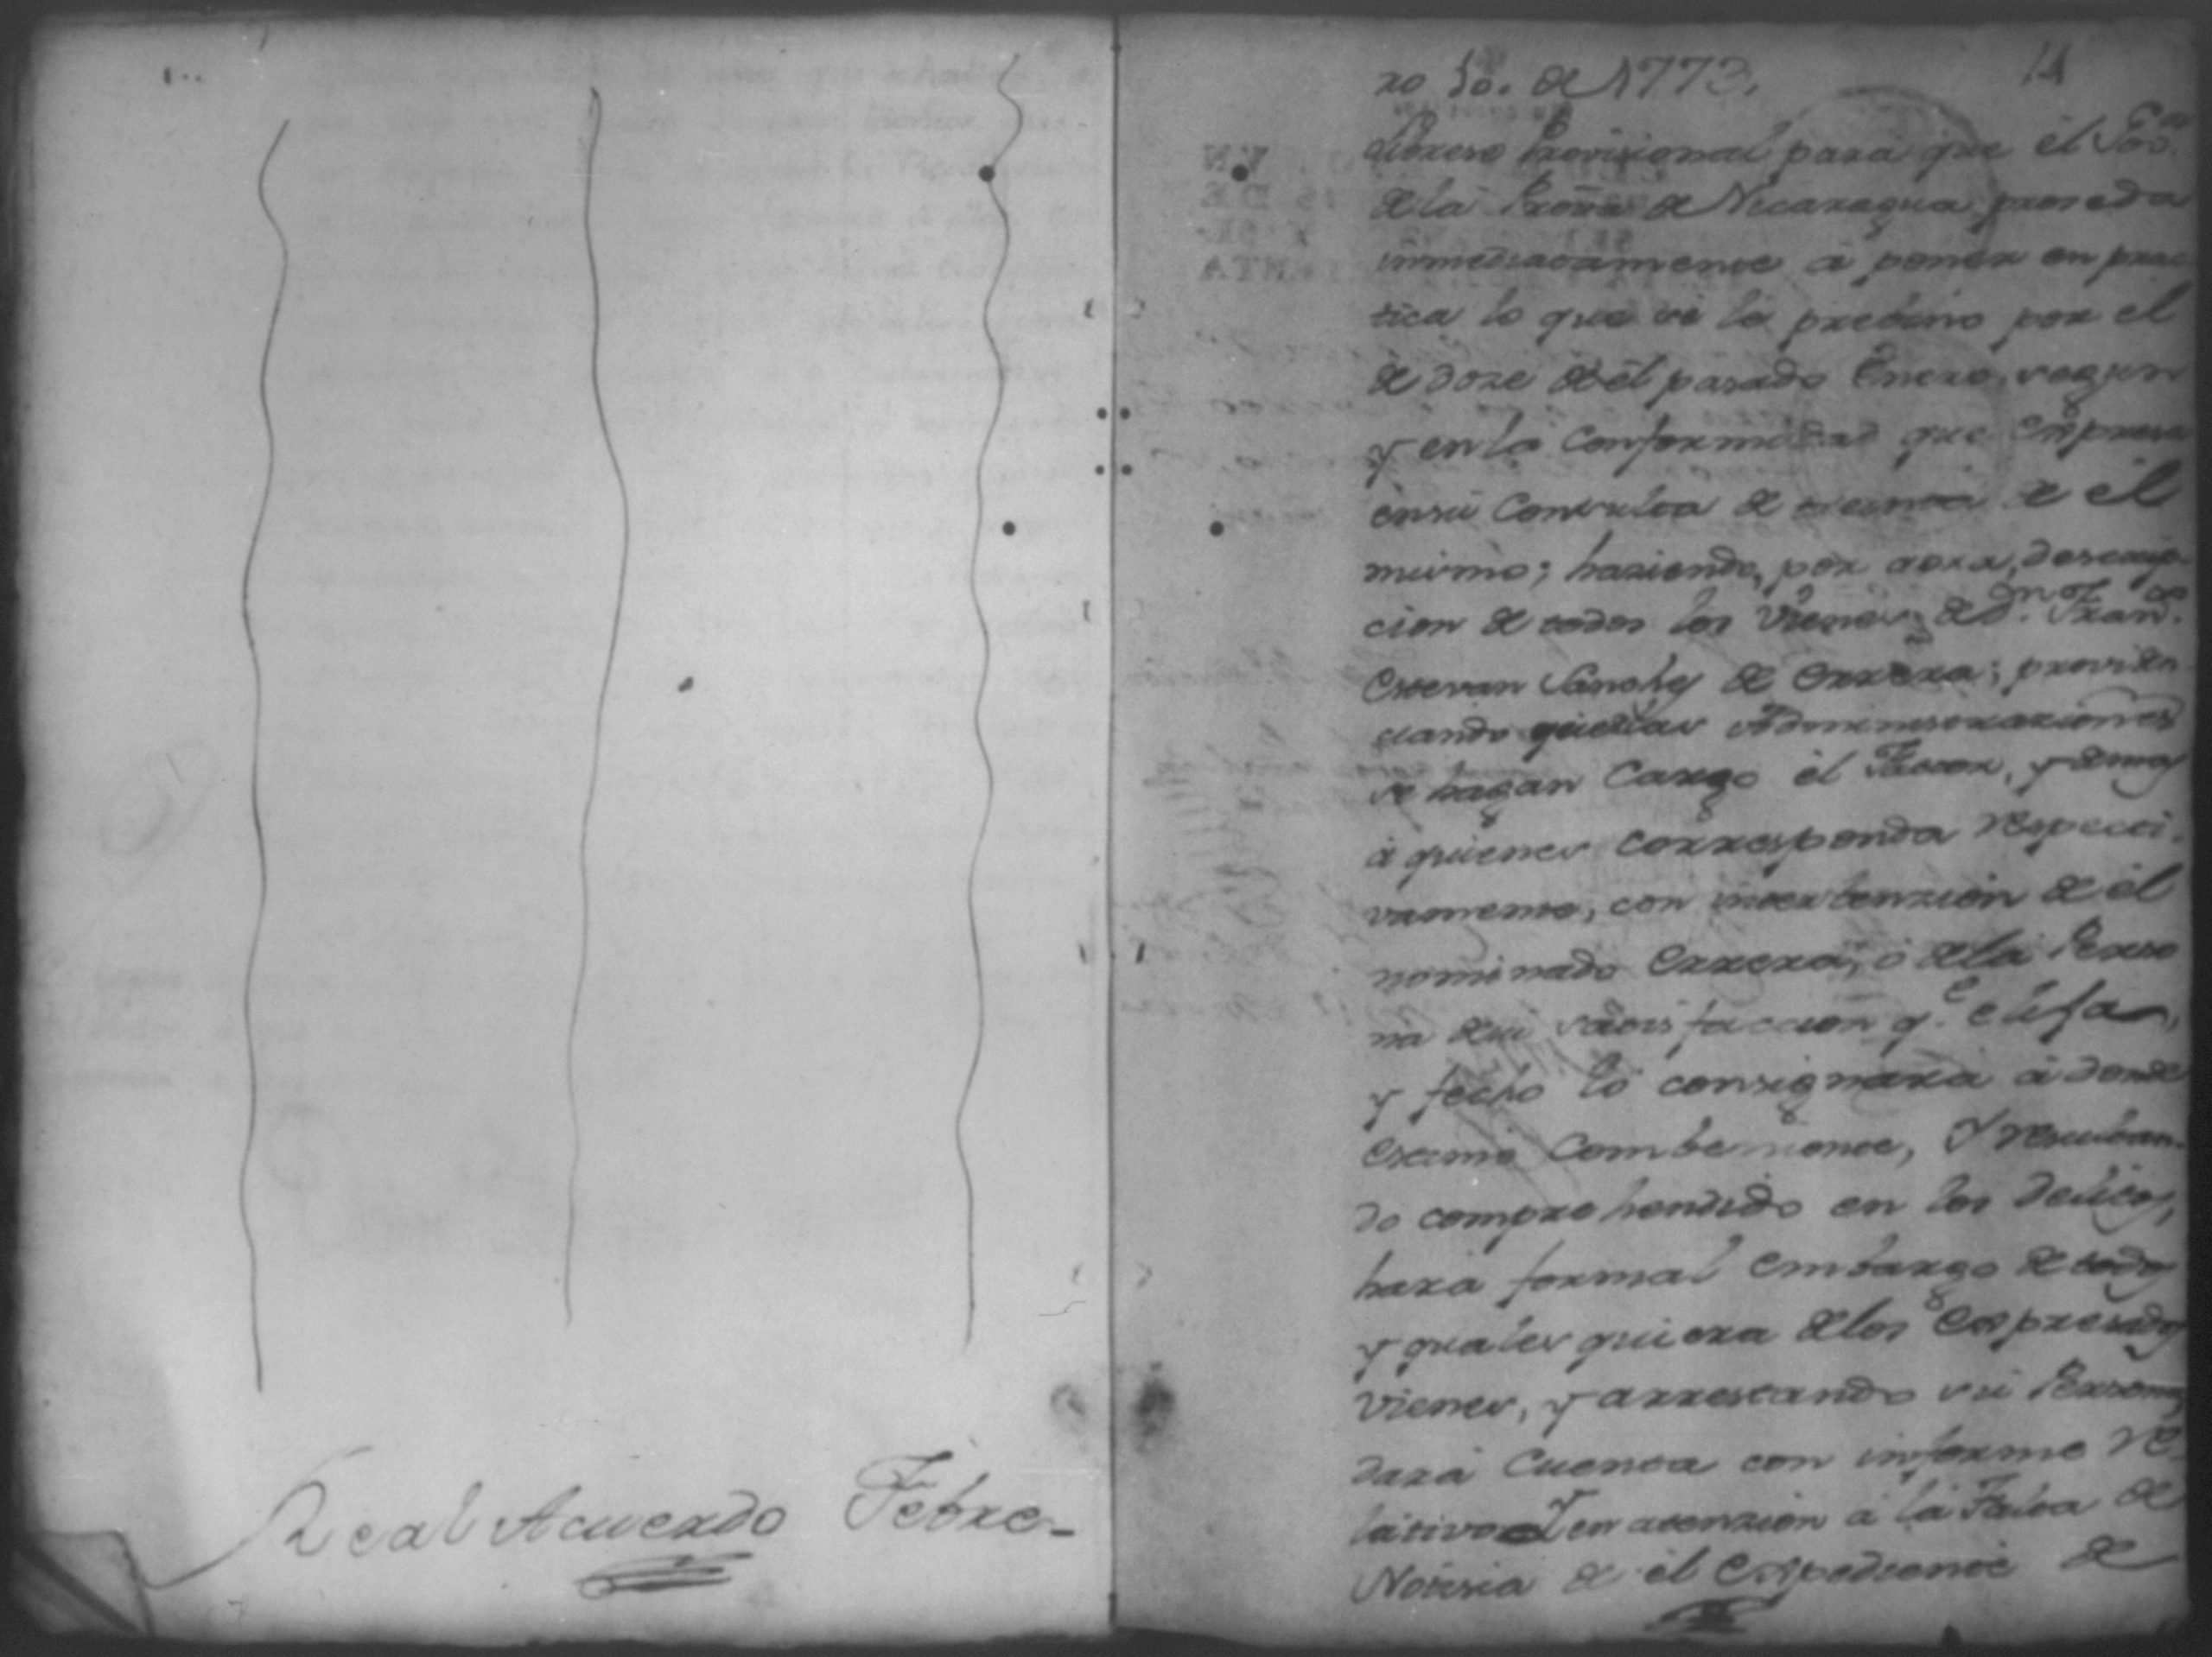 Real Acuerdo Febre-
ro 10. de 1773.
librese Provisional para que él Gov.or
de la Prov.a de Nicaragua proseda
inmediatamente á poner en prac
tica lo que se le prebino por el
de doze de él pasado Enero, segun
y en la Conformidad que Expresa
en su Consulta de treinta de él
mismo; haziendo, por aora, descrip-
cion de todos los Vienes de D.n Fran.co
Estevan Sanchez de Errera; providen
ciando que de las Administraziones
se hagan Cargo él Factor, y demas
á quienes corresponda respecti-
vamente, con interbenzion de él
nominado Errera, ó de la Perso
na de su satisfaccion q.e elija,
y fecho lo consignará á donde
estime Combeniente, Y resultan-
do comprehendido en los delitos,
hará formal embargo de todos
y quales quiera de los Expresados
Vienes, y arrestando su Persona,
dará Cuenta con informe re
lativo Y en atenzion á la Falta de
Notisia de él Expediente de